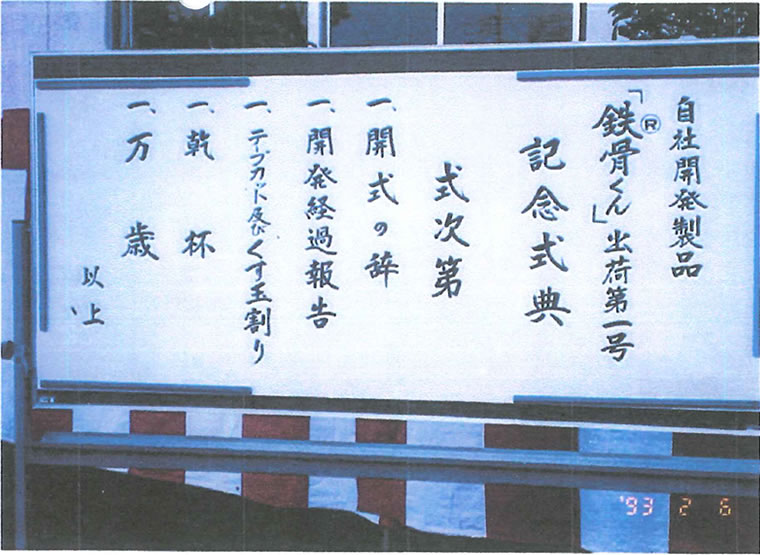 自社開発製品
「鉄骨くん」® 出荷第一号
記念式典
式次第
一、開式の辞
一、開発経過報告
一、テープカット及びくす玉割り
一、乾杯
一、万歳
以上
'93 2 6